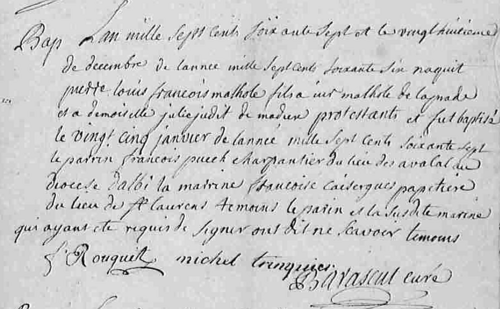 Bap Lan mille sept cents soixante sept et le vingt huitieme
de decembre de lannee mille sept cents soixante six naquit
pierre louis francois malhole fils a
et a demoiselle julie judit de protestants et fut baptisé
le vingt cinq janvier de lanneé mille sept cents soixante sept
le parrin francois puech charpantier du lieu des
diocese dalbi la marine francoise caisergues papetiere
du lieu de st laurens temoins le parin et la susdite marine
qui ayant ete requis de signer ont dit ne scavoir temoins
f Rouquet michel trinquier
Barascut curé